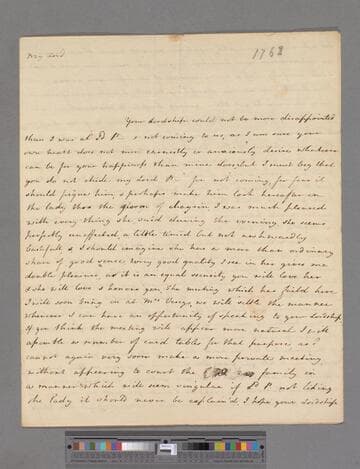 My Lord
1768
Your Lordship could not be more disappointed
than I was at Ld P— s not coming to us, as I am sure your
own heart does not more earnestly or anxiously desire whatever
can be for your happiness than mine does, but I must beg that
you do not chide my Lord P— for not coming, for fear it
should pique him & perhaps make him look hereafter on
the Lady thro the gloom of chagrin I was much pleased
with every thing she said during the evening, she seems
perfectly unaffected, a little timid but not awkwardly
bashfull & I should imagine she has a more than ordinary
share of good sense; every good quality I see in her gives me
double pleasure as it is an equal security you will love her
& she will love & honour you. the meeting which has faild here
I will soon bring in at Mrs we will settle the manner
whenever I can have an opportunity of speaking to your Lordship.
If you think the meeting will appear more natural I will
assemble a number of card tables for that purpose, as I
cannot again very soon make a more private meeting
without appearing to court the family in
a manner which will seem singular if Ld P. not liking
the Lady it should never be explain'd. I hope your Lordship